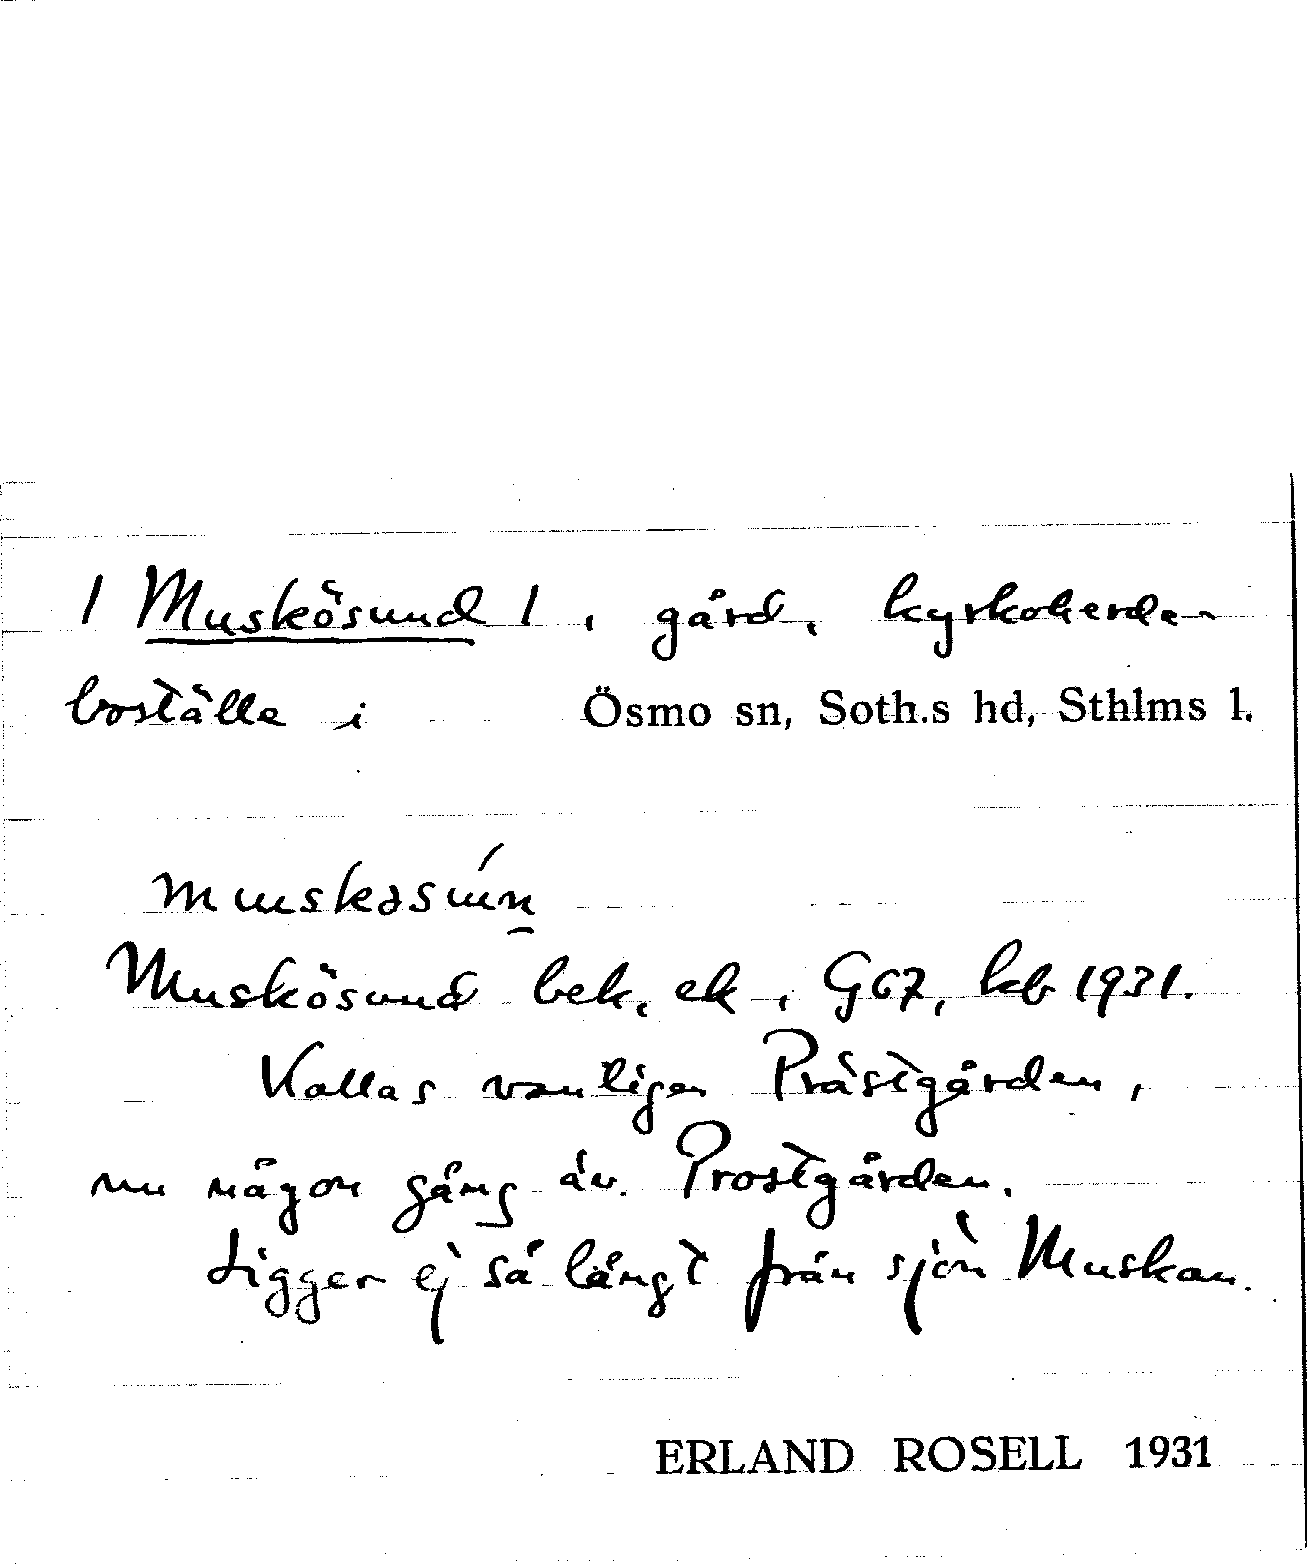 / Muskösund /, gård, kyrkoherde-
boställe i Ösmo sn, Soth.s hd, Sthlms l.
muskəsún̠
Muskösund bek, ek, G67, kb 1931.
Kallas vanligen Prästgården,
nu någon gång äv. Prostgården.
Ligger ej så långt från sjön Muskan.
ERLAND ROSELL 1931